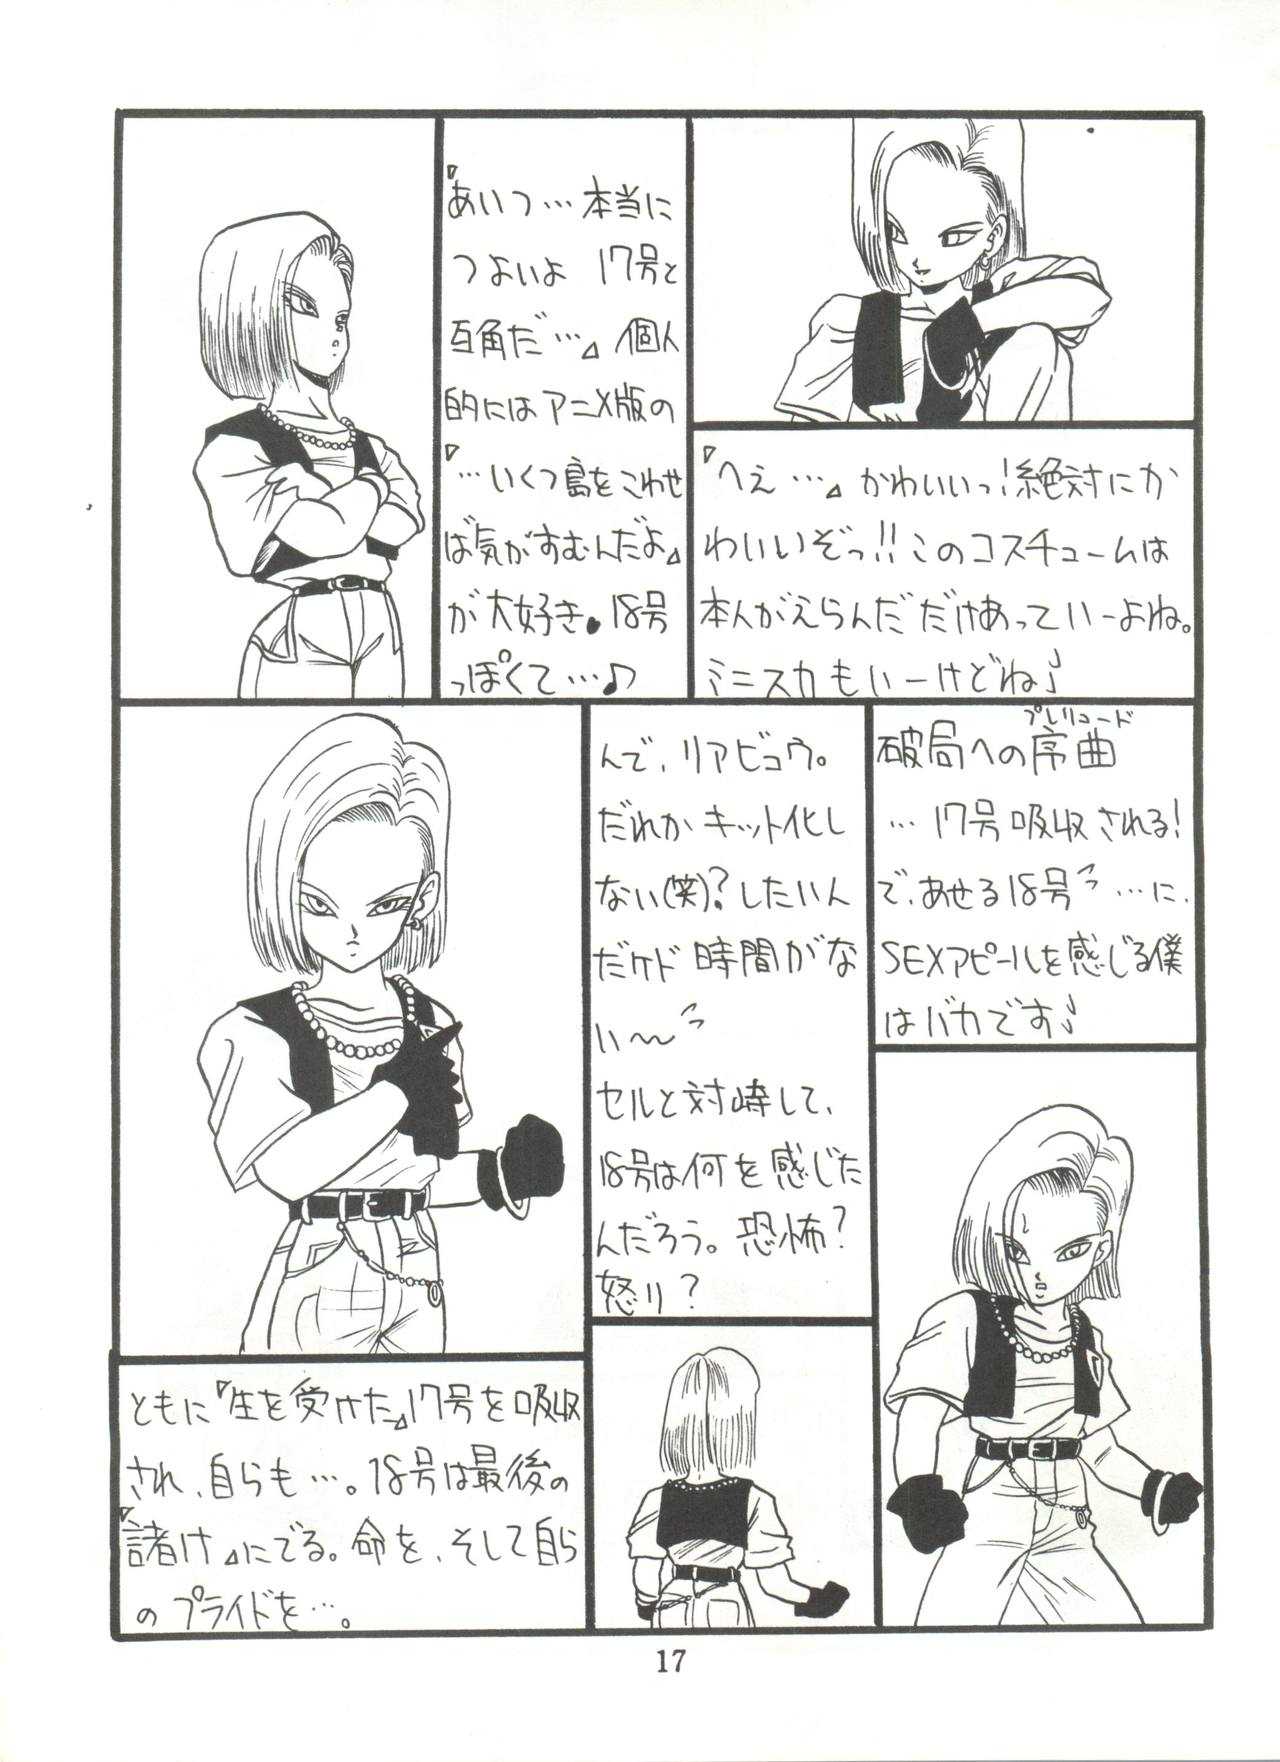 『へえ…』かわいいっ!絶対にか
わいいぞっ!!このコスチュームは
本人がえらんだだけあっていーよね。
ミニスカもいーけどね♪
『あいつ…本当に
つよいよ 17号と
互角だ…』個人
的にはアニメ版の
『…いくつ島をこわせ
ば気がすむんだよ』
が大好き。18号
っぽくて…♪
破局への序曲
プレリュード
…17号吸収される!
で、あせる18号 …に、
SEXアピールを感じる僕
はバカです♪
んで、リアビュウ。
だれかキット化し
ない(笑)?したいん
だケド時間がな
い〜
セルと対峙して、
18号は何を感じた
んだろう。恐怖?
怒り?
ともに『生を受けた』17号を吸収
され、自らも…。18号は最後の
『諸け』にでる。命を、そして自ら
のプライドを…。
17